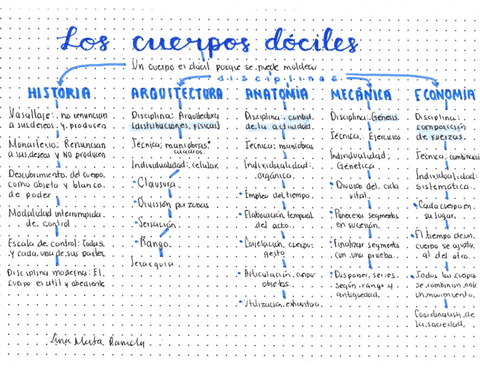 Los cuerpos dóciles
Un cuerpo es dócil porque se puede moldear
disciplinas
HISTORIA
Vasallaje: no renuncian
a sus deseos y producen
Monasterio: Renuncian
a sus deseos y NO producen
Descubrimiento del cuerpo
como objeto y blanco
de poder
Modalidad interrumpida
de control
Escala de control: Todas
y cada una de sus partes
Disciplina moderna: El
cuerpo es útil y obediente
ARQUITECTURA
Disciplina: Arquitectura
(distribuciones físicas)
Técnica: maniobras
Individualidad: celular
• Clausura
• División por zonas
• Seriación
• Rango
Jerarquía
ANATOMÍA
Disciplina: control
de la actividad
Técnica: maniobras
Individualidad:
orgánica
• Empleo del tiempo
• Elaboración temporal
del acto
• Correlación cuerpo-
gesto
• Articulación cuerpo
objetos
• Utilización exhaustiva
MECÁNICA
Disciplina: Génesis
Técnica: Ejercicios
Individualidad:
Genética
• División del ciclo
vital
en sucesión
• Finalizar segmento
con una prueba
• Disponer series
según rango y
antigüedad
ECONOMÍA
Disciplina:
composición
de fuerzas
Técnica: combinación
Individualidad:
sistemática
• Cada cuerpo en
su lugar
• El tiempo de un
cuerpo se ajusta
al del otro
• Todos los cuerpos
se combinan ante
un movimiento
Coordinación de
la sociedad